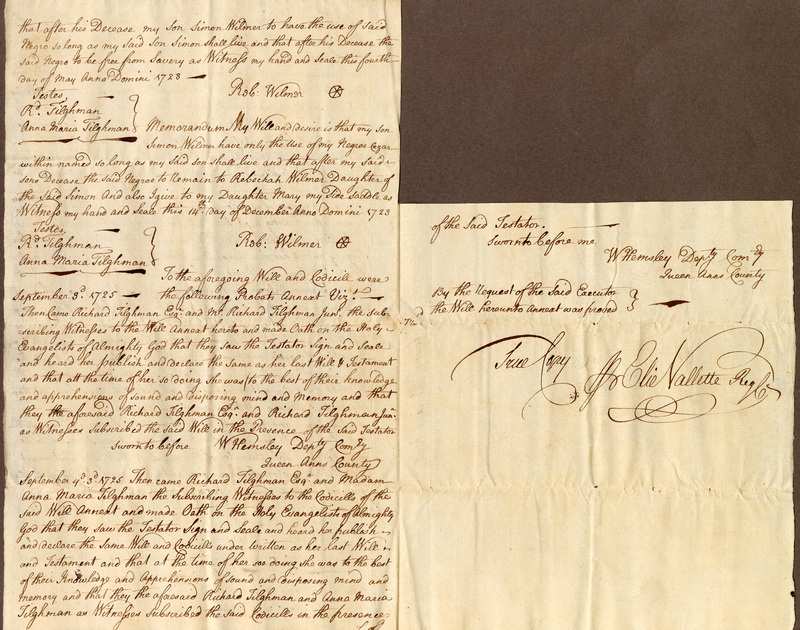 that after his Decease my Son Simon Wilmer to have the use of Said
Negro so long as my Said son Simon shall live and that after his Decease the
said Negro to be free from Savery as Witness my hand and Seale this fourth
day of May Anno Domini 1723
Testes
Rd. Tilghman
Anna Maria Tilghman
Rob: Wilmer
Memorandum My Will and desire is that my Son
Simon Wilmer have only the use of my Negroe Cezar
within named so long as my Said son shall live and that after my Said
sons Decease the said Negroe to Remain to Rebeckah Wilmer Daughter of
the Said Simon And also I give to my Daughter Mary my Side Saddle as
Witness my hand and Seale this 14th day of December Anno Domini 1723
Testes
Rd. Tilghman
Anna Maria Tilghman
Rob: Wilmer
To the aforegoing Will and Codicill were
September 3d. 1725 the following Probats Annext Vizt.
Then Came Richard Tilghman Esqr. and Mr. Richard Tilghman Junr. the sub=
scribing Witnesses to the Will Annext hereto and made Oath on the Holy
Evangelists of Almighty God that they saw the Testator Sign and Seale
and heard her publish and declare the same as her last Will & Testament
and that at the time of her so doing she was (to the best of their knowledge
and apprehensions of sound and disposing mind and Memory and that
they the aforesaid Richard Tilghman Esqr. and Richard Tilghman Junr.
as Witnesses Subscribed the said Will in the Presence of the Said Testator
Sworn to before W Hemsley Depty Comry
Queen Anns County
September 4th 3d. 1725 Then came Richard Tilghman Esqr. and Madam
Anna Maria Tilghman the Subscribing Witnesses to the Codicills of the
said Will Annext and made Oath on the Holy Evangelists of Almighty
God that they saw the Testator Sign and Seale and heard her publish
and declare the Same Will and Codicills under written as her last Will
and Testament and that at the time of her soe doing she was to the best
of their Knowledge and Apprehensions of sound and disposing mind and
memory and that they the aforesaid Richard Tilghman and Anna Maria
Tilghman as Witnesses Subscribed the said Codicills in the presence
of the Said Testator.
Sworn to before me
W Hemsley Depty Comry
Queen Anns County
By the Request of the Said Executor
the Will hereunto Annext was proved
True Copy
Pr Elie Vallette Regr